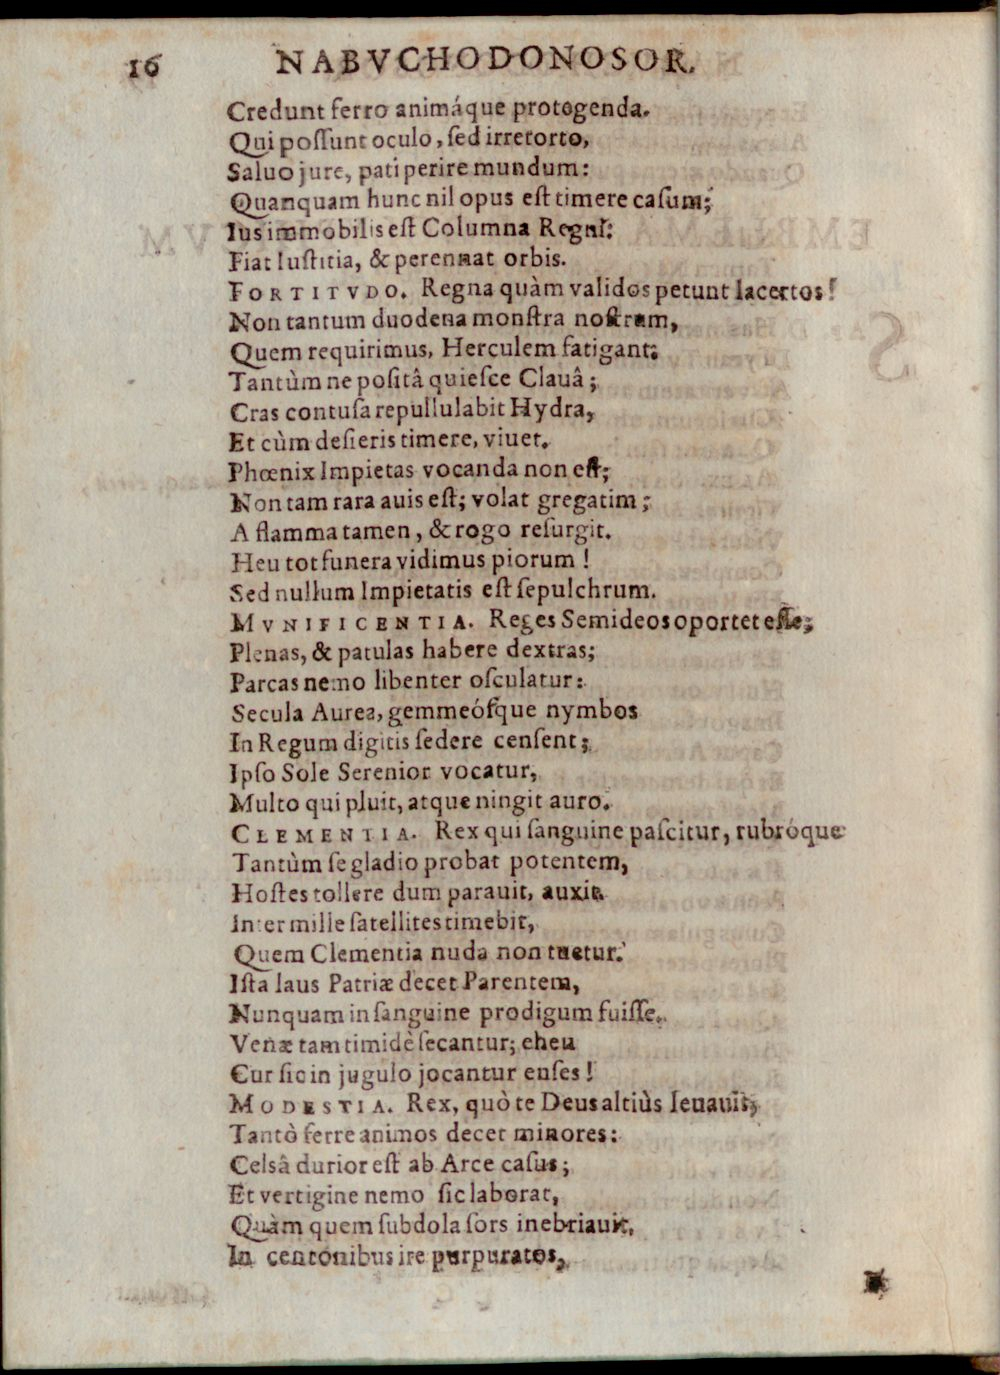 16 NABVCHODONOSOR.
Credunt ferro animáque protegenda.
Qui poſſunt oculo, ſed irretorto,
Saluo jure, pati perire mundum:
Quanquam hunc nil opus eſt timere caſum;
Ius immobilis eſt Columna Regni:
Fiat Iuſtitia, & perennat orbis.
FORTITVDO. Regna quàm validos petunt lacertos!
Non tantum duodena monſtra noſtrum,
Quem requirimus, Herculem fatigant:
Tantùm ne poſitâ quieſce Clauâ;
Cras contuſa repullulabit Hydra,
Et cùm deſieris timere, viuet.
Phœnix Impietas vocanda non eſt;
Non tam rara auis eſt; volat gregatim;
A flamma tamen, & rogo reſurgit.
Heu tot funera vidimus piorum!
Sed nullum Impietatis eſt ſepulchrum.
MVNIFICENTIA. Reges Semideos oportet eſſe;
Plenas, & patulas habere dextras;
Parcas nemo libenter oſculatur:
Secula Aurea, gemmeóſque nymbos
In Regum digitis ſedere cenſent;
Ipſo Sole Serenior vocatur,
Multo qui pluit, atque ningit auro.
CLEMENTIA. Rex qui ſanguine paſcitur, rubróque
Tantùm ſe gladio probat potentem,
Hoſtes tollere dum parauit, auxit.
Inter mille ſatellites timebit,
Quem Clementia nuda non tuetur.
Iſta laus Patriæ decet Parentem,
Nunquam in ſanguine prodigum fuiſſe.
Venæ tam timidè ſecantur; eheu
Cur ſic in jugulo jocantur enſes!
MODESTIA. Rex, quò te Deus altiùs leuauit,
Tantò ferre animos decet minores:
Celsâ durior eſt ab Arce caſus;
Et vertigine nemo ſic laborat,
Quàm quem ſubdola ſors inebriauit,
In centonibus ire purpuratos,